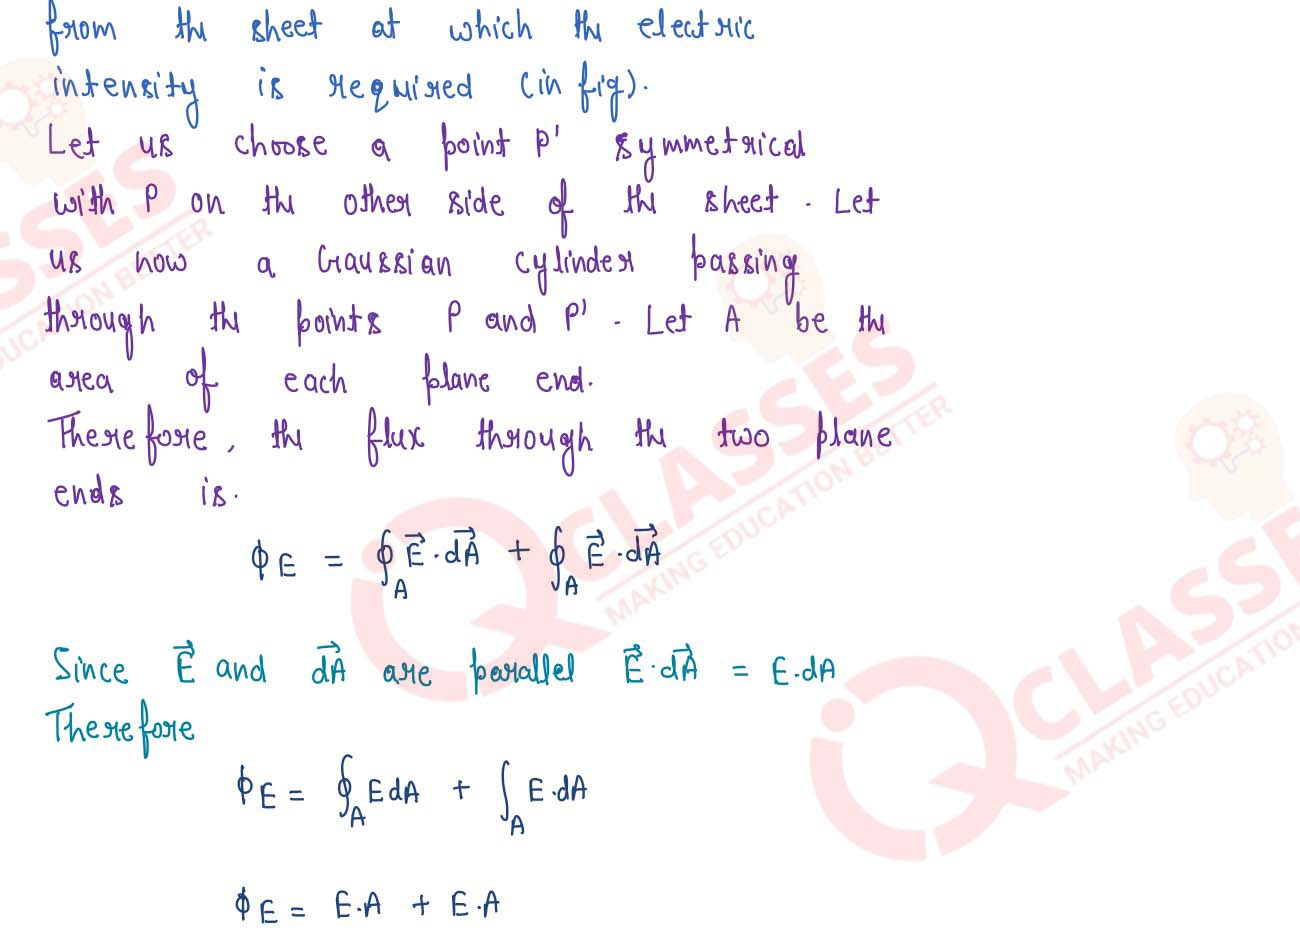 from the sheet at which the electric
intensity is required (in fig).
Let us choose a point P' symmetrical
with P on the other side of the sheet. Let
us now a Gaussian cylinder passing
through the points P and P'. Let A be the
area of each plane end.
Therefore, the flux through the two plane
ends is.
ϕE = ∮A E⃗·dA⃗ + ∮A E⃗·dA⃗
Since E⃗ and dA⃗ are parallel E⃗·dA⃗ = E.dA
Therefore
ϕE = ∮A EdA + ∫A E·dA
ϕE = E.A + E.A
IQ CLASSES
MAKING EDUCATION BETTER